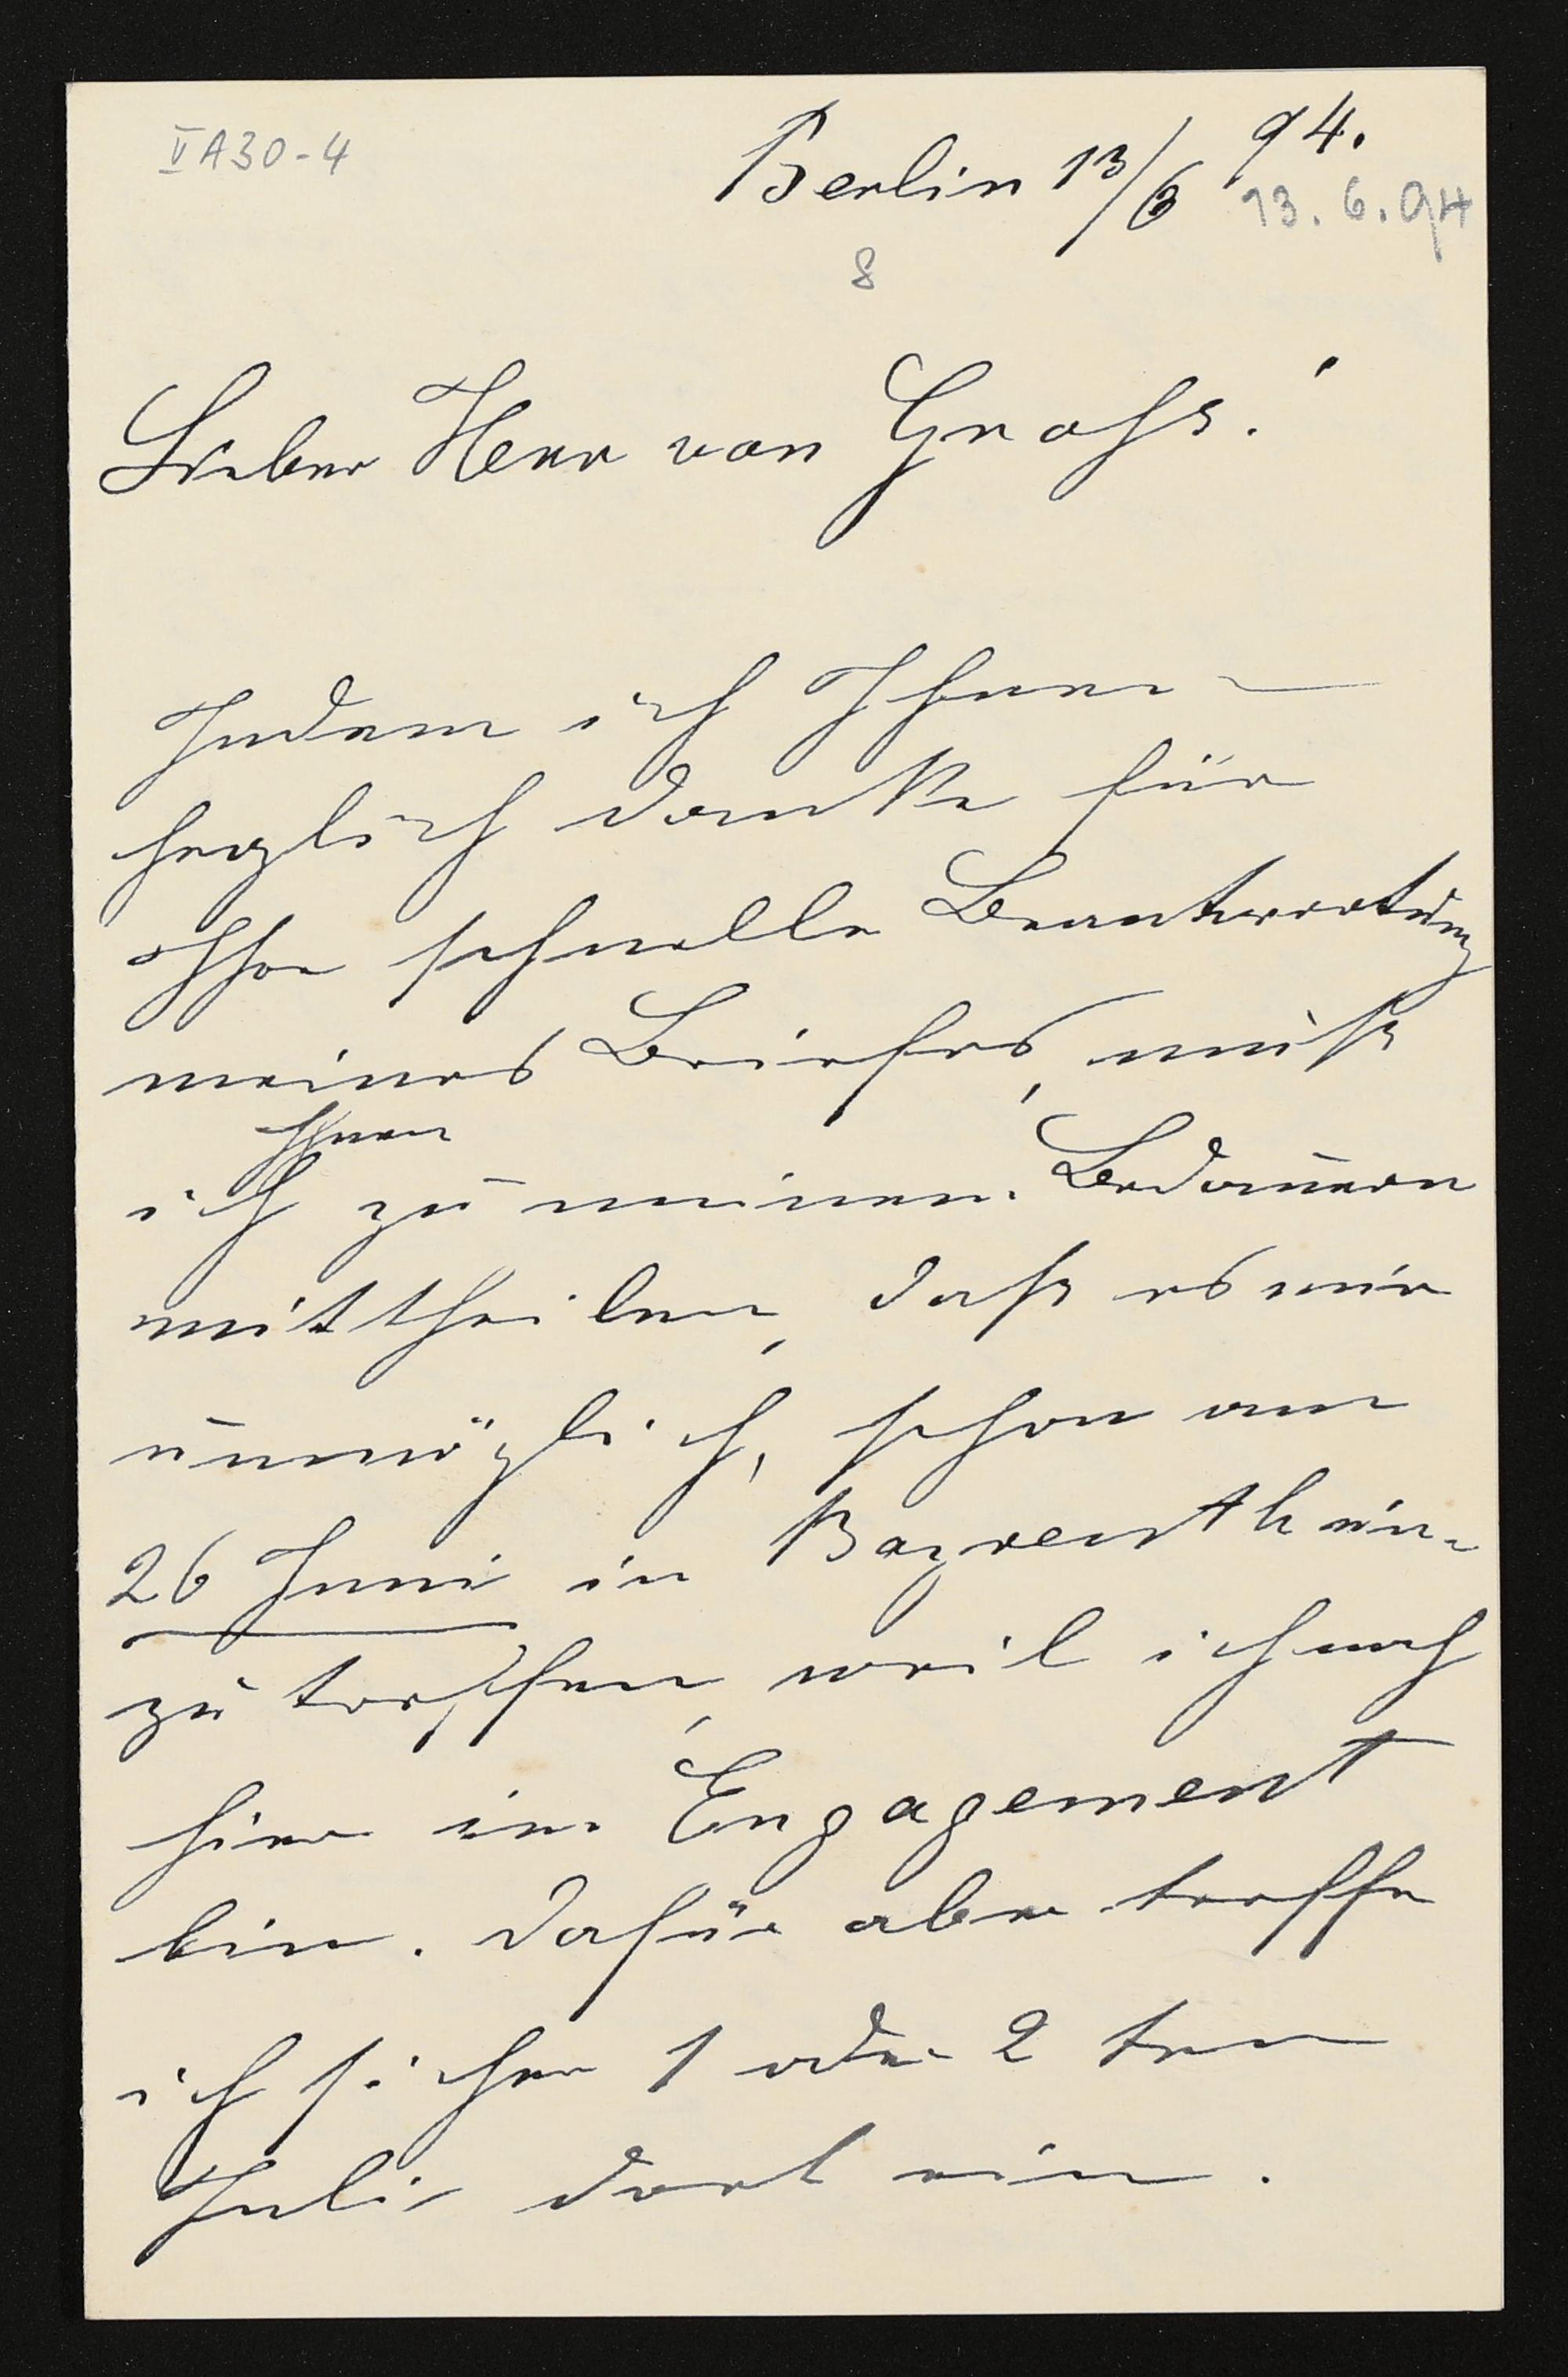 V A30-4
Berlin 13/6 94.
13. 6. 94
8
Lieber Herr von Groß!
Indem ich Ihnen
herzlich danke für
Ihre schnelle Beantwortung
meines Briefes, muß
Ihnen
ich zu meinem Bedauern
mittheilen, daß es mir
unmöglich, schon am
26 Juni in Bayreuth ein-
zutreffen, weil ich noch
hier im Engagement
bin. Dafür aber treffe
ich sicher 1 oder 2 ten
Juli dort ein.